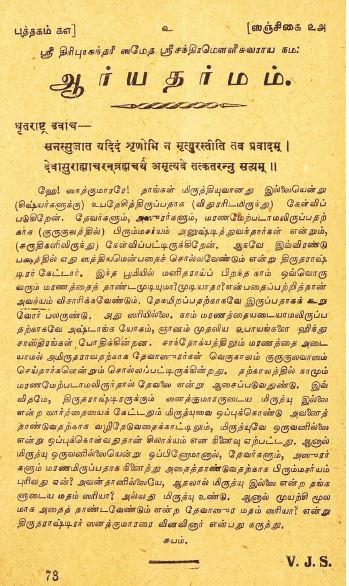 புத்தகம் கஎ]
உ
[ஸஞ்சிகை உஅ
ஸ்ரீ திரிபுரசுந்தரீ ஸமேத ஸ்ரீசந்திரமௌளீசுவராய நம:
ஆர்யதர்மம்.
धृतराष्ट्र उवाच—
सनत्सुजात यदिदं शृणोभि न मृत्युरस्तीति तव प्रवादम् ।
देवासुराह्याचरन्ब्रह्मचर्यं अमृत्यवे तत्कतरन्नु सत्यम् ॥
ஹே! ஸநத்குமாரரே! தாங்கள் மிருத்யுவானது இல்லையென்று
(சிஷ்யர்களுக்கு) உபதேசித்திருப்பதாக (விதுரரிடமிருந்து) கேள்விப்
படுகிறேன். தேவர்களும், அஸுரர்களும், மரணமேற்படாமலிருப்பதற்
காக (குருகுலத்தில்) பிரும்மசர்யம் அனுஷ்டித்துவந்தார்கள் என்றும்,
(சுருதிகளிலிருந்து) கேள்விப்பட்டிருகிறேன். ஆகவே இவ்விரண்டு
பக்ஷத்தில் எது ஸத்தியமென்பதைச் சொல்லவேண்டும் என்று திருதராஷ்
டிரர் கேட்டார். இந்த பூமியில் மனிதராய்ப் பிறந்த நாம் ஒவ்வொரு
வரும் மரணத்தைத் தாண்டமுடியுமா?முடியாதா?என்பதைப்பற்றித்தான்
அவச்யம் விசாரிக்கவேண்டும். தேகமிறப்பதற்காகவே இருப்பதாகக் கூறு
வோர் பலருண்டு. அது ஸரியில்லை. நாம் மரணத்தையடையாமலிருப்ப
தற்காகவே அஷ்டாங்க யோகம், ஞானம் முதலிய உபாயங்களை ஹிந்து
சாஸ்திரங்கள் போதிக்கின்றன. சாந்தோக்யத்திலும் மரணத்தை அடை
யாமல் அமிருதராவதற்காக தேவாஸுரர்கள் வெகுகாலம் குருகுலவாஸம்
செய்தார்களென்றும் சொல்லப்பட்டிருக்கின்றது. தற்காலத்தில் நாமும்
மரணமேற்படாமலிருந்தால் தேவலை என்று ஆசைப்படுவதுண்டு. இவ்
விதமே, திருதராஷ்டிரருக்கும் ஸனத்குமாரருடைய மிருத்யு இல்லை
என்ற வார்த்தையைக் கேட்டதும் மிருத்யுவை ஒப்புக்கொண்டு அவனைத்
தாண்டுவதற்காக வழிதேடுவதைக்காட்டிலும், மிருத்யுவே ஒருவனில்லை
என்று ஒப்புக்கொள்வதுதான் சிலாக்யம் என நினைவு ஏற்பட்டது. ஆனால்
மிருத்யு ஒருவனில்லையென்று ஒப்பினோமானால், தேவர்களும், அஸுரர்
களும் மரணமிருப்பதாக நினைத்து அதைத்தாண்டுவதற்காக பிரும்மசர்யம்
புரிவது ஏன்? அவன்தானில்லையே, ஆதலால் மிருத்யு இல்லை என்ற தங்க
ளுடைய மதம் ஸரியா? அல்லது மிருத்யு உண்டு. ஆனால் முயற்சி மூல
மாக அதைத் தாண்டவேண்டும் என்ற தேவாஸுர மதம் ஸரியா? என்று
திருதராஷ்டிரர் ஸனத்குமாரரை வினவினார் என்பது கருத்து.
சுபம்.
V. J. S.
73